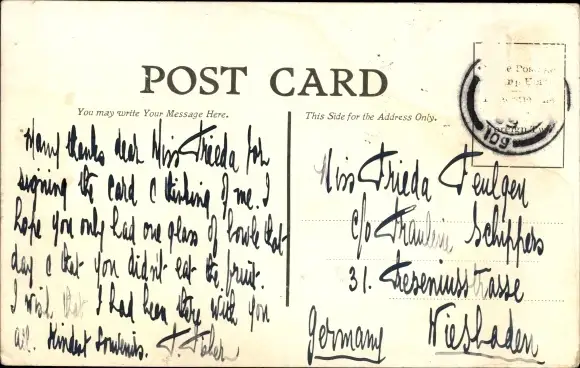 POST CARD
You may write Your Message Here.
This Side for the Address Only.
Many thanks dear Miss Frieda for
signing the card & thinking of me. I
hope you only had one glass of Bowle that
day & that you didn't eat the fruit.
I wish that I had been there with you
all. Kindest Souvenirs.
Miss Frieda Feulgen
c/o Fräulein Schippers
31. Freseniusstrasse
Germany Wiesbaden
109